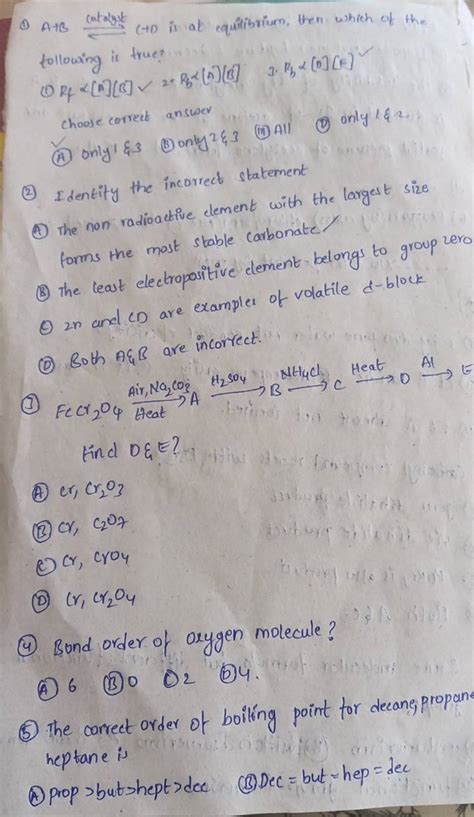 ① A+B catalyst ⇌ C+D is at equilibrium, then which of the
following is true?
(1) Rf ∝ [A][B] ✓ 2. Rb ∝ [A][B] 3. Rb ∝ [D][E] ✓
choose correct answer
Ⓐ only 1 & 3 Ⓑ only 2 & 3 All Ⓓ only 1 & 2
② Identify the incorrect statement
Ⓐ The non radioactive element with the largest size
forms the most stable carbonate
Ⓑ The least electropositive element belongs to group zero
Ⓒ Zn and CD are examples of volatile d-block
Ⓓ Both A & B are incorrect.
③ FeCr2O4 Air, Na2CO3 Heat → A H2SO4 → B NH4Cl → C Heat → D Al → E
Find D & E?
Ⓐ Cr, Cr2O3
Ⓑ Cr, C2O7
Ⓒ Cr, CrO4
Ⓓ Cr, Cr2O4
④ Bond order of oxygen molecule?
Ⓐ 6 Ⓑ 0 Ⓒ 2 Ⓓ 4.
⑤ The correct order of boiling point for decane, propane
heptane is
Ⓐ prop > but > hept > dec Ⓑ Dec = but = hep = dec